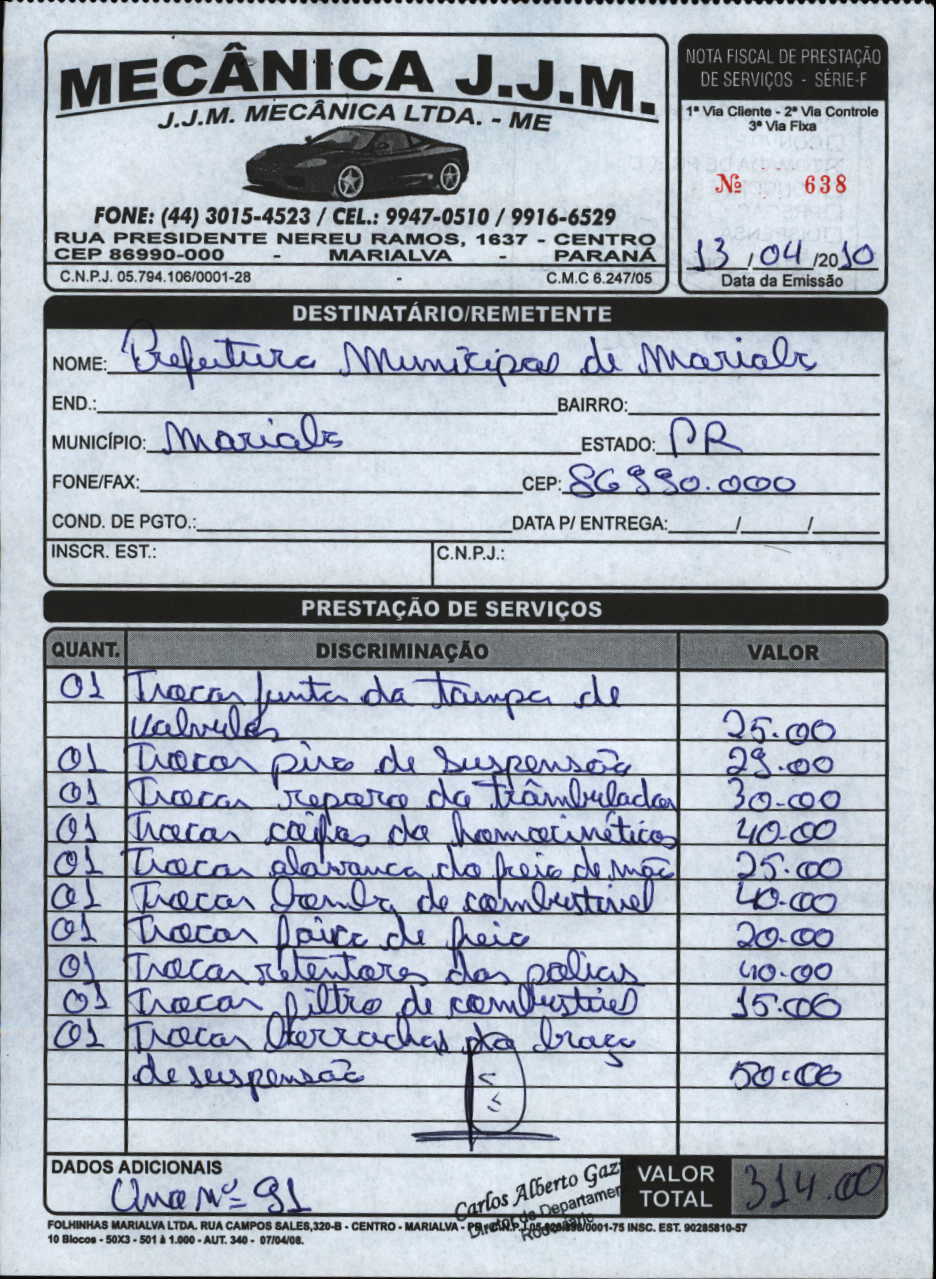 MECÂNICA J.J.M.
J.J.M. MECÂNICA LTDA. - ME
FONE: (44) 3015-4523 / CEL.: 9947-0510 / 9916-6529
RUA PRESIDENTE NEREU RAMOS, 1637 - CENTRO
CEP 86990-000 - MARIALVA - PARANÁ
C.N.P.J. 05.794.106/0001-28 - C.M.C 6.247/05
NOTA FISCAL DE PRESTAÇÃO
DE SERVIÇOS - SÉRIE-F
1ª Via Cliente - 2ª Via Controle
3ª Via Fixa
Nº 638
13/04/2010
Data da Emissão
DESTINATÁRIO/REMETENTE
NOME: Prefeitura Municipal de Marialv
END.: BAIRRO:
MUNICÍPIO: Marialv ESTADO: PR
FONE/FAX: CEP: 86990.000
COND. DE PGTO.: DATA P/ ENTREGA: / /
INSCR. EST.: C.N.P.J.:
PRESTAÇÃO DE SERVIÇOS
QUANT. DISCRIMINAÇÃO VALOR
01 Trocar junta da tampa de
valvulas 25.00
01 Trocar pivo de suspensão 29.00
01 Trocar reparo do trâmbulador 30.00
01 Trocar coifas do homocinéticos 40.00
01 Trocar alavanca do freio de mão 25.00
01 Trocar bomba de combustivel 40.00
01 Trocar faixa de freio 20.00
01 Trocar retentores das polias 40.00
01 Trocar filtro de combustivel 15.00
01 Trocar borrachas do braço
de suspensão 50.00
DADOS ADICIONAIS
Uno Nº 91
Carlos Alberto Gaz
Diretor do Departamen
Rodoviário
VALOR TOTAL 314.00
FOLHINHAS MARIALVA LTDA. RUA CAMPOS SALES,320-B - CENTRO - MARIALVA - PR /0001-75 INSC. EST. 90285810-57
10 Blocos - 50X3 - 501 à 1.000 - AUT. 340 - 07/04/08.